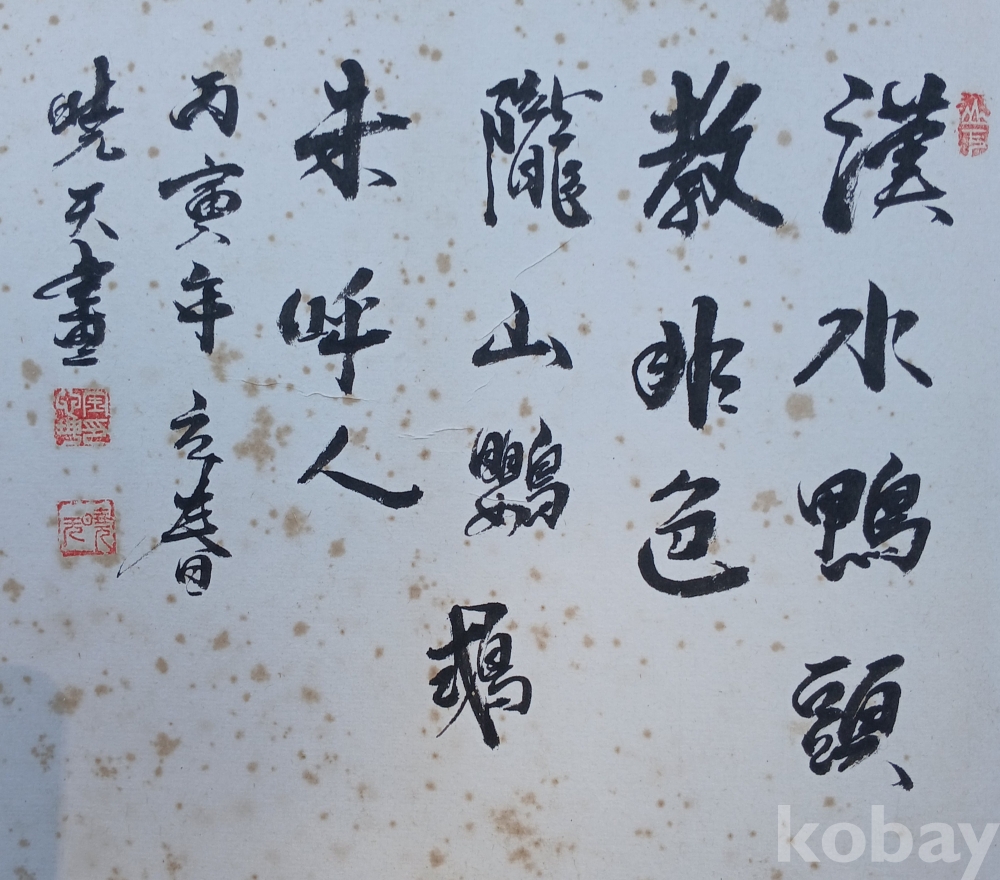 漢水鴨頭
教非色
隴山鸚鵡
呼人
丙寅年立春
曉天畫
曉天
kobay